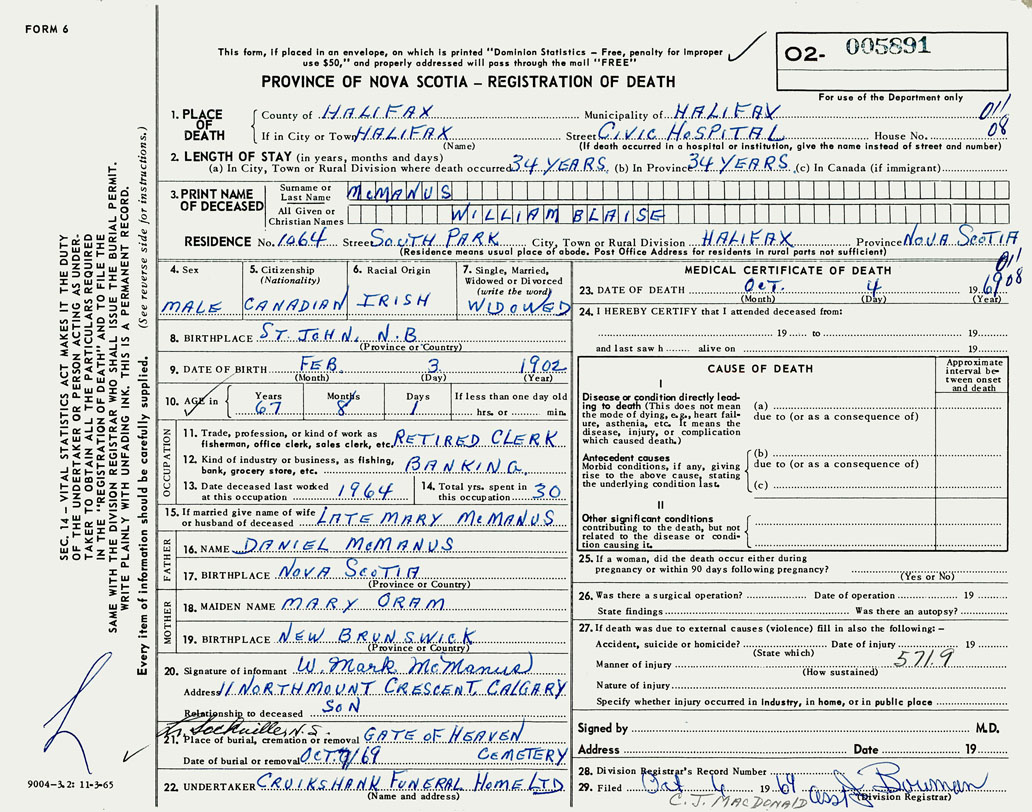 FORM 6
This form, if placed in an envelope, on which is printed "Dominion Statistics – Free, penalty for improper
use $50," and properly addressed will pass through the mail "FREE"
02- 005891
For use of the Department only
PROVINCE OF NOVA SCOTIA – REGISTRATION OF DEATH
1. PLACE OF DEATH
County of HALIFAX Municipality of HALIFAX 011
If in City or Town HALIFAX Street CIVIC HOSPITAL House No. 08
(Name) (If death occurred in a hospital or institution, give the name instead of street and number)
2. LENGTH OF STAY (in years, months and days)
(a) In City, Town or Rural Division where death occurred 34 YEARS (b) In Province 34 YEARS (c) In Canada (if immigrant)
3. PRINT NAME OF DECEASED
Surname or Last Name McMANUS
All Given or Christian Names WILLIAM BLAISE
RESIDENCE No. 1064 Street SOUTH PARK City, Town or Rural Division HALIFAX Province NOVA SCOTIA
(Residence means usual place of abode. Post Office Address for residents in rural parts not sufficient)
011
08
4. Sex
MALE
5. Citizenship
(Nationality)
CANADIAN
6. Racial Origin
IRISH
7. Single, Married,
Widowed or Divorced
(write the word)
WIDOWED
8. BIRTHPLACE ST. JOHN, N.B.
(Province or Country)
9. DATE OF BIRTH FEB. 3 1902
(Month) (Day) (Year)
10. AGE in
Years Months Days If less than one day old
67 8 1 hrs. or min.
OCCUPATION
11. Trade, profession, or kind of work as
fisherman, office clerk, sales clerk, etc. RETIRED CLERK
12. Kind of industry or business, as fishing,
bank, grocery store, etc. BANKING
13. Date deceased last worked
at this occupation 1964
14. Total yrs. spent in
this occupation 30
15. If married give name of wife
or husband of deceased LATE MARY McMANUS
FATHER
16. NAME DANIEL McMANUS
17. BIRTHPLACE NOVA SCOTIA
(Province or Country)
MOTHER
18. MAIDEN NAME MARY ORAM
19. BIRTHPLACE NEW BRUNSWICK
(Province or Country)
20. Signature of informant W. Mark McManus
Address 11 NORTHMOUNT CRESCENT CALGARY
Relationship to deceased SON
Sackville, N.S.
21. Place of burial, cremation or removal GATE OF HEAVEN
Date of burial or removal OCT. 7/69 CEMETERY
22. UNDERTAKER CRUIKSHANK FUNERAL HOME LTD
(Name and address)
MEDICAL CERTIFICATE OF DEATH
23. DATE OF DEATH OCT. 4 1969
(Month) (Day) (Year)
24. I HEREBY CERTIFY that I attended deceased from:
19 to 19
and last saw h alive on 19
CAUSE OF DEATH
Approximate
interval be-
tween onset
and death
I
Disease or condition directly lead-
ing to death (This does not mean
the mode of dying, e.g., heart fail-
ure, asthenia, etc. It means the
disease, injury, or complication
which caused death.)
(a)
due to (or as a consequence of)
Antecedent causes
Morbid conditions, if any, giving
rise to the above cause, stating
the underlying condition last.
(b)
due to (or as a consequence of)
(c)
II
Other significant conditions
contributing to the death, but not
related to the disease or condi-
tion causing it.
25. If a woman, did the death occur either during
pregnancy or within 90 days following pregnancy?
(Yes or No)
26. Was there a surgical operation? Date of operation 19
State findings Was there an autopsy?
27. If death was due to external causes (violence) fill in also the following: –
Accident, suicide or homicide? Date of injury 19
(State which) 571.9
Manner of injury
(How sustained)
Nature of injury
Specify whether injury occurred in industry, in home, or in public place
Signed by M.D.
Address Date 19
28. Division Registrar's Record Number
29. Filed Oct 6 1969 asst J. Bowman
(Division Registrar)
C. J. MACDONALD
SEC. 14 – VITAL STATISTICS ACT MAKES IT THE DUTY
OF THE UNDERTAKER OR PERSON ACTING AS UNDER-
TAKER TO OBTAIN ALL THE PARTICULARS REQUIRED
IN THE "REGISTRATION OF DEATH" AND TO FILE THE
SAME WITH THE DIVISION REGISTRAR WHO SHALL ISSUE BURIAL PERMIT.
WRITE PLAINLY WITH UNFADING INK. THIS IS A PERMANENT RECORD.
Every item of information should be carefully supplied. (See reverse side for instructions.)
9004-3.2: 11-3-65